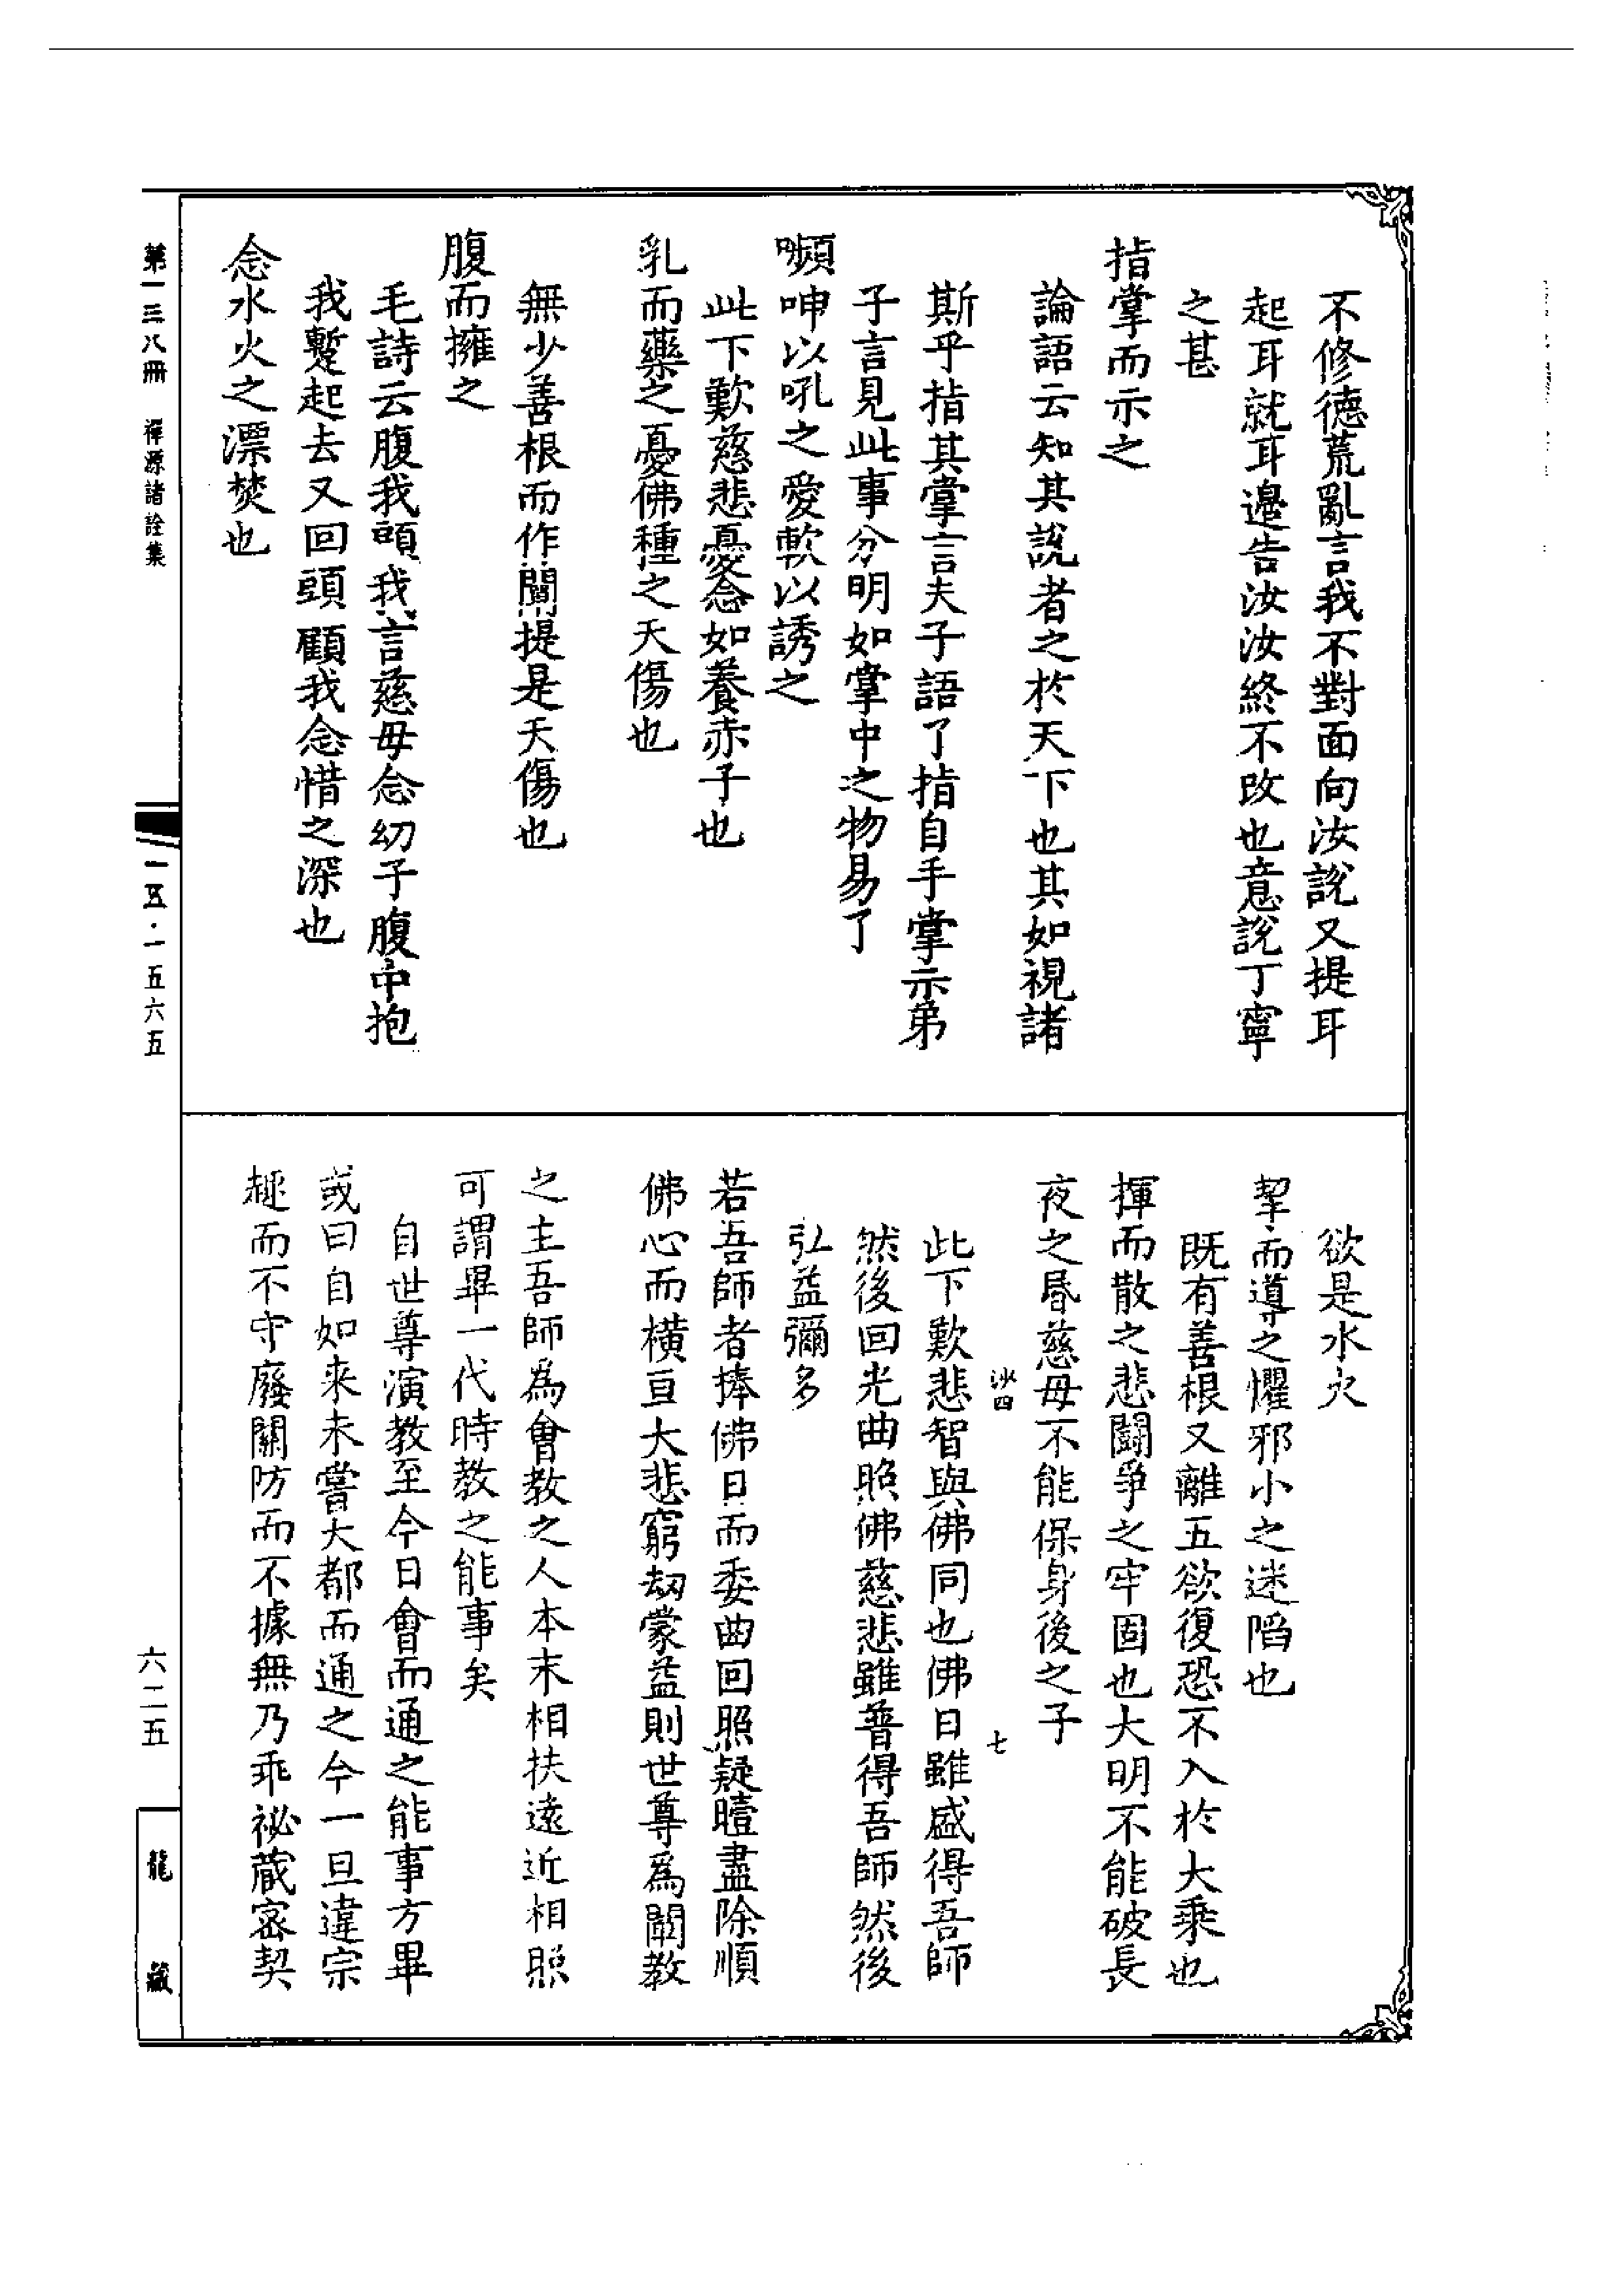 不修德荒亂言我不對面向汝說又提耳
起耳就耳邊告汝汝終不改也意說丁寧
之甚
指掌而示之
論語云知其說者之於天下也其如視諸
斯乎指其掌言夫子語了指自手掌示弟
子言見此事分明如掌中之物易了
嚬呻以吼之愛軟以誘之
此下歎慈悲憂念如養赤子也
乳而藥之憂佛種之夭傷也
無少善根而作闡提是夭傷也
腹而擁之
毛詩云腹我頭我言慈母念幼子腹中抱
我蹔起去又回頭顧我念惜之深也
念水火之漂焚也
欲是水火
挈而導之懼邪小之迷陷也
既有善根又離五欲復恐不入於大乘也
揮而散之悲鬪爭之牢固也大明不能破長
夜之昏慈母不能保身後之子
沙四
七
此下歎悲智與佛同也佛日雖盛得吾師
然後回光曲照佛慈悲雖普得吾師然後
弘益彌多
若吾師者捧佛日而委曲回照疑曀盡除順
佛心而橫亘大悲窮劫蒙益則世尊為闡教
之主吾師為會教之人本末相扶遠近相照
可謂畢一代時教之能事矣
自世尊演教至今日會而通之能事方畢
或曰自如来未嘗大都而通之今一旦違宗
趣而不守廢關防而不據無乃乖祕藏密契
第一三八冊 禪源諸詮集
一五·一五六五
六二五
龍藏